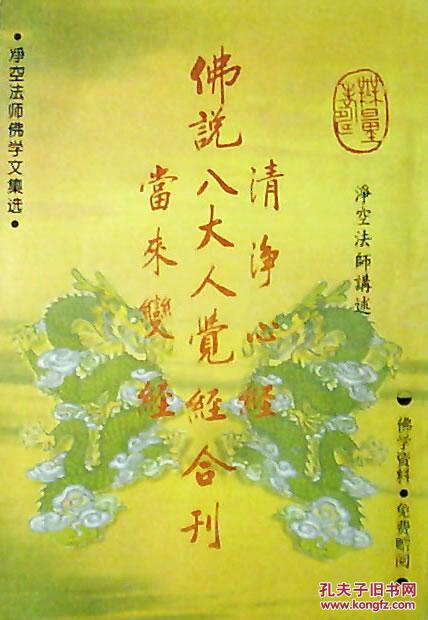 淨空法師講述
佛学资料•免费赠阅
清淨心經
佛說八大人覺經合刊
當來變經
•净空法师佛学文集选•
孔夫子旧书网
www.kongfz.com